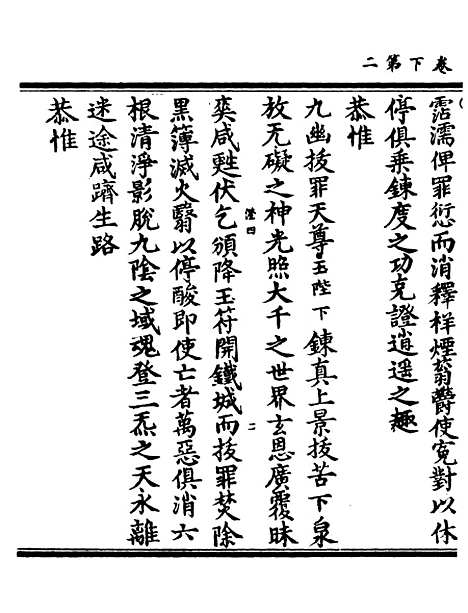 卷下第二
霑濡俾罪愆而消釋祥煙蓊欝使寃對以休
停俱乗鍊度之功克證逍遥之趣
恭惟
九幽拔罪天尊玉陛下鍊真上景拔苦下泉
放无礙之神光照大千之世界玄恩廣覆昧
奕咸甦伏乞頒降玉符開鐵城而拔罪焚除
黒簿滅火翳以停酸即使亡者萬惡俱消六
根清淨影脫九陰之域魂登三炁之天永離
迷途咸躋生路
恭惟
二